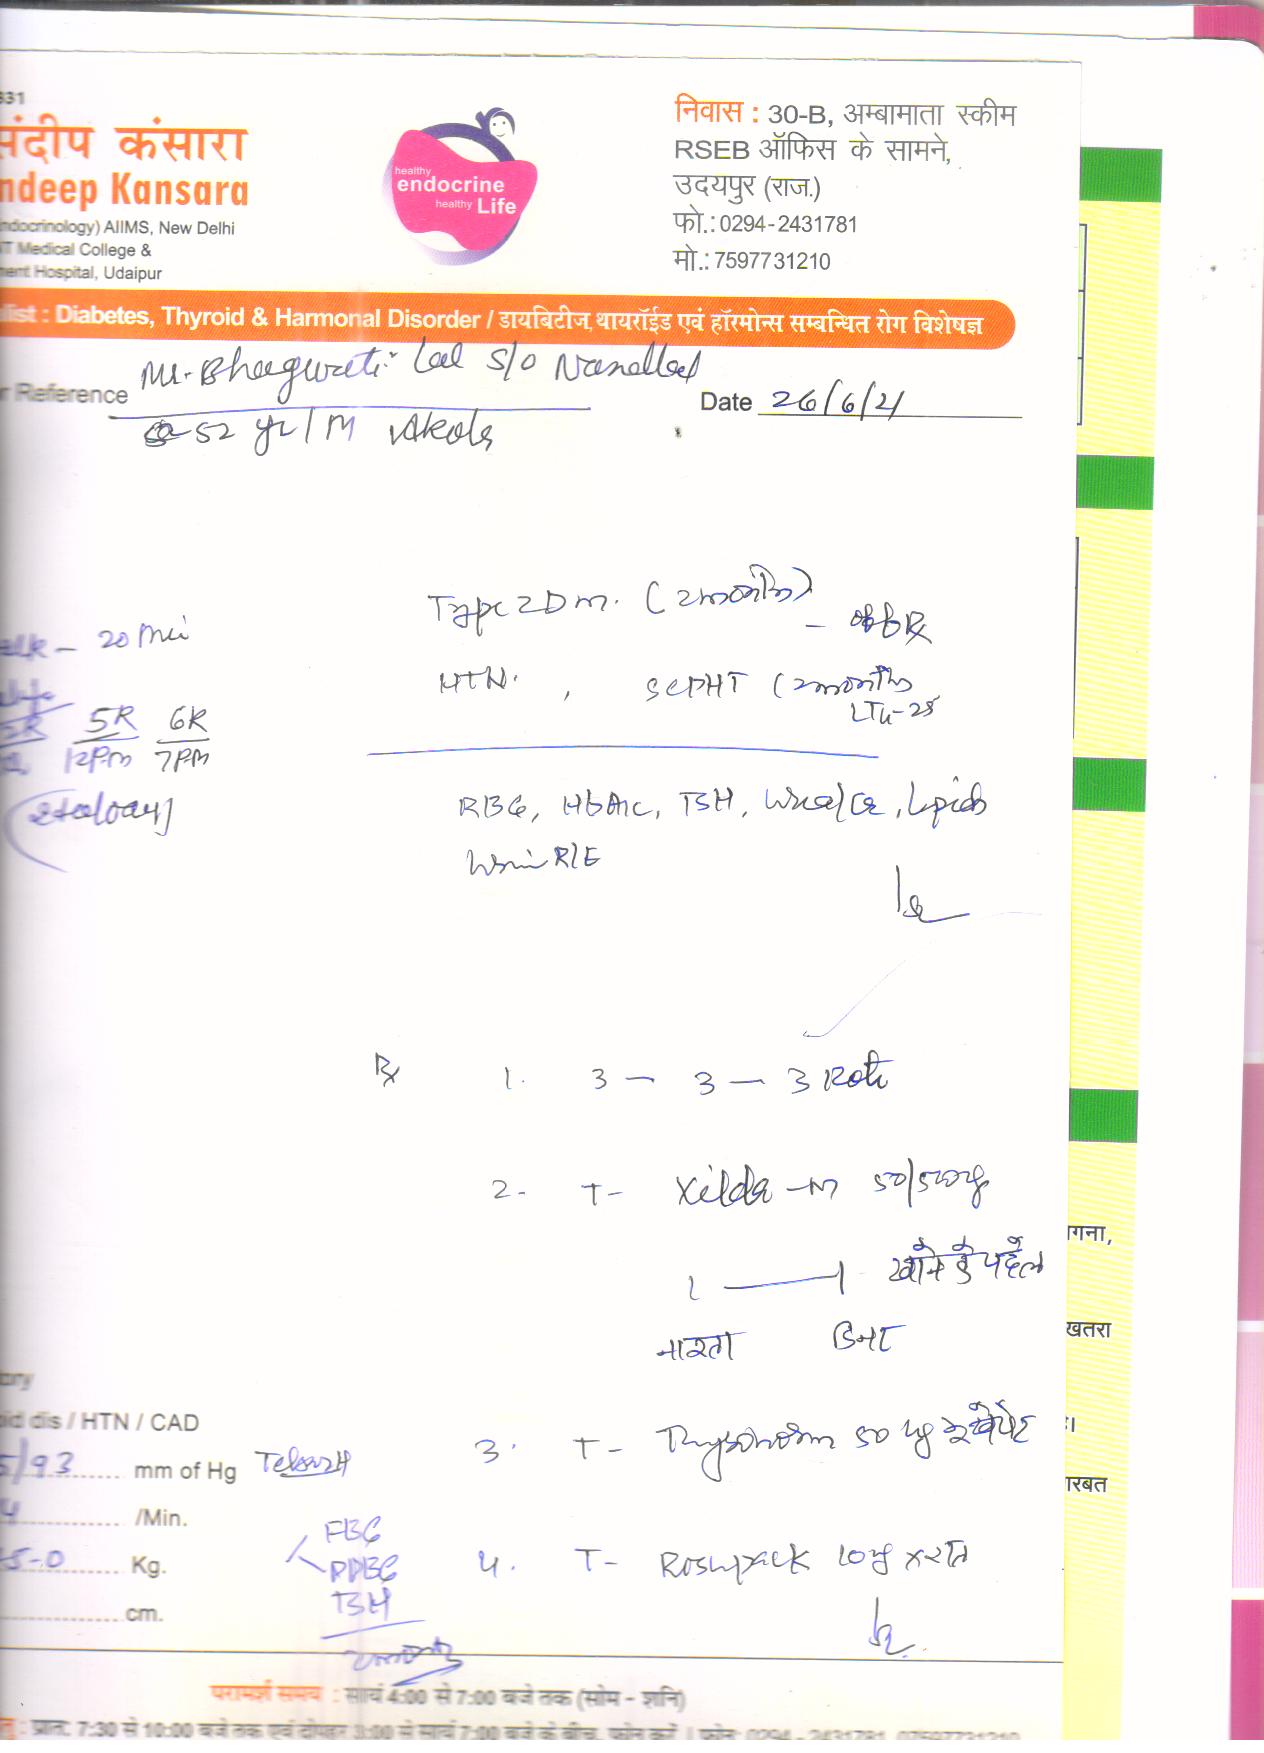 331
संदीप कंसारा
ndeep Kansara
ndocrinology) AIIMS, New Delhi
T Medical College &
ment Hospital, Udaipur
healthy
endocrine
healthy Life
निवास : 30-B, अम्बामाता स्कीम
RSEB ऑफिस के सामने,
उदयपुर (राज.)
फो.: 0294-2431781
मो.: 7597731210
list : Diabetes, Thyroid & Harmonal Disorder / डायबिटीज, थायरॉईड एवं हॉरमोन्स सम्बन्धित रोग विशेषज्ञ
r Reference Mr. Bhagwati Lal S/O Nanallal
Date 26/6/21
52 yr/M Akola
Type 2 Dm. (2 months) - off Rx
HTN. , SCPHT (2 months
LT4-25
alk - 20 min
5R 6R
12Pm 7PM
RBG, HbA1c, TSH, Urea/Cr, Lipids
Urine R/E
Rx 1. 3 - 3 - 3 Roti
2- T- Xilda-M 50/500mg
1 — 1 खाने के पहले
नाश्ता डिनर
3. T- Thyronorm 50 ug
4. T- 10mg x रात
गना,
खतरा
।
ारबत
ory
oid dis / HTN / CAD
5/93 mm of Hg Telsar H
4 /Min.
5-0 Kg.
cm.
FBG
PPBG
TSH
2 months
परामर्श समय : सायं 4:00 से 7:00 बजे तक (सोम - शनि)
: प्रातः 7:30 से 10:00 बजे तक एवं दोपहर 3:00 से सायं 7:00 बजे के बीच, फोन करें । फोन: 0294 - 2431781, 07597731210